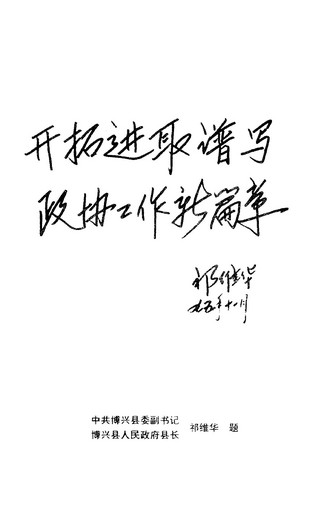 开拓进取谱写
政协工作新篇章
祁维华
九五年十一月
中共博兴县委副书记
博兴县人民政府县长 祁维华 题